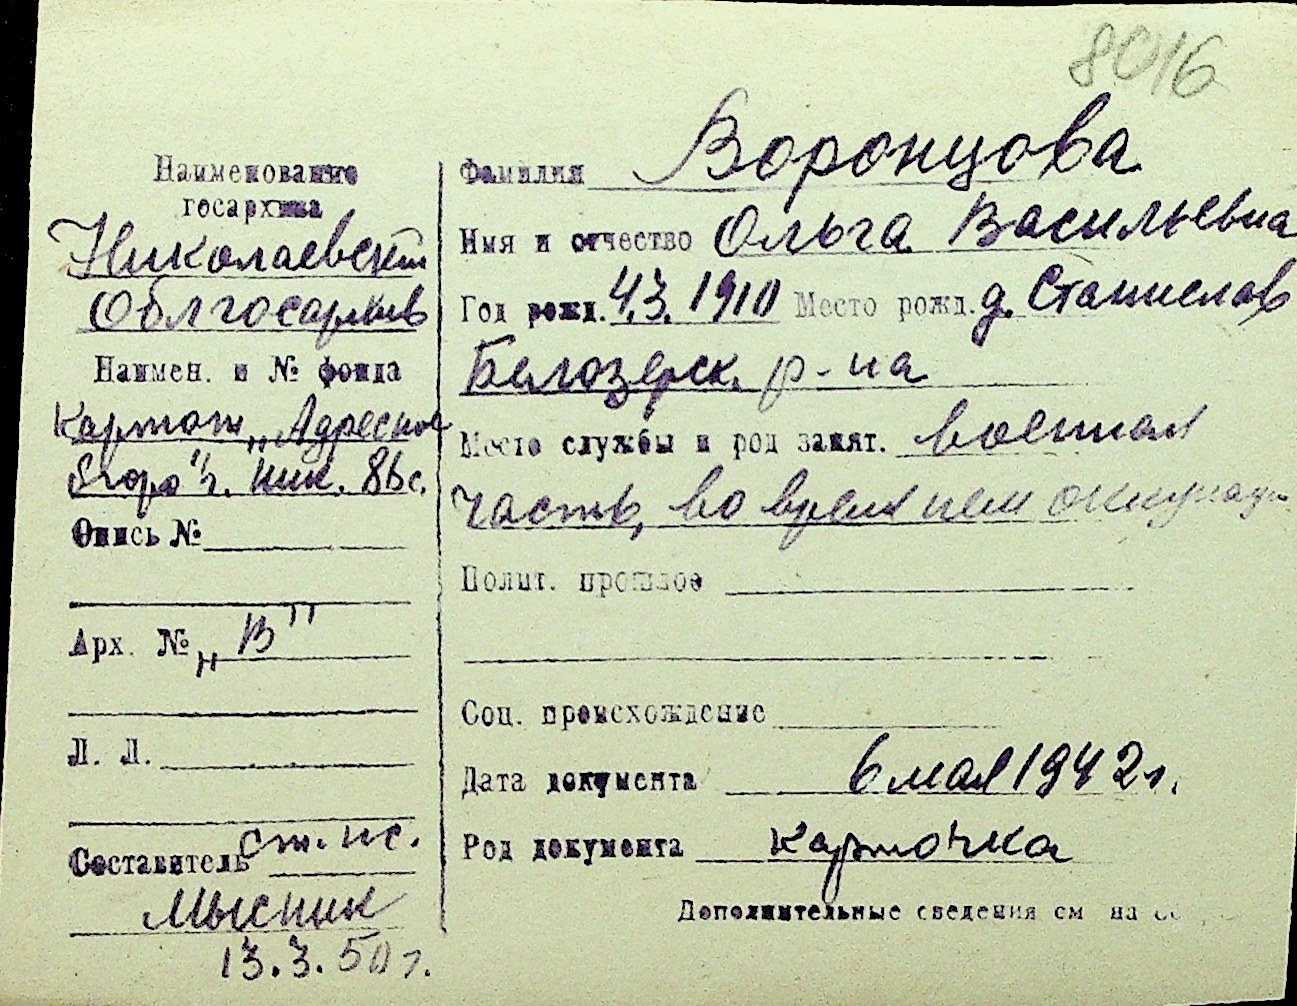 8016
Наименование
госархива
Николаевский
Облгосархив
Наимен. и № фонда
Картот. „Адресное
бюро" г. Ник. 8бс.
Опись №
Арх. № „В"
Л. Л.
Составитель ст. ис.
Мысник
13.3.50 г.
Фамилия Воронцова
Имя и отчество Ольга Васильевна
Год рожд. 4.3.1910 Место рожд. д. Станислав
Белозерск. р-на
Место службы и род занят. военная
часть, во время нем оккупаци
Полит. прошлое
Соц. происхождение
Дата документа 6 мая 1942 г.
Род документа карточка
Дополнительные сведения см на